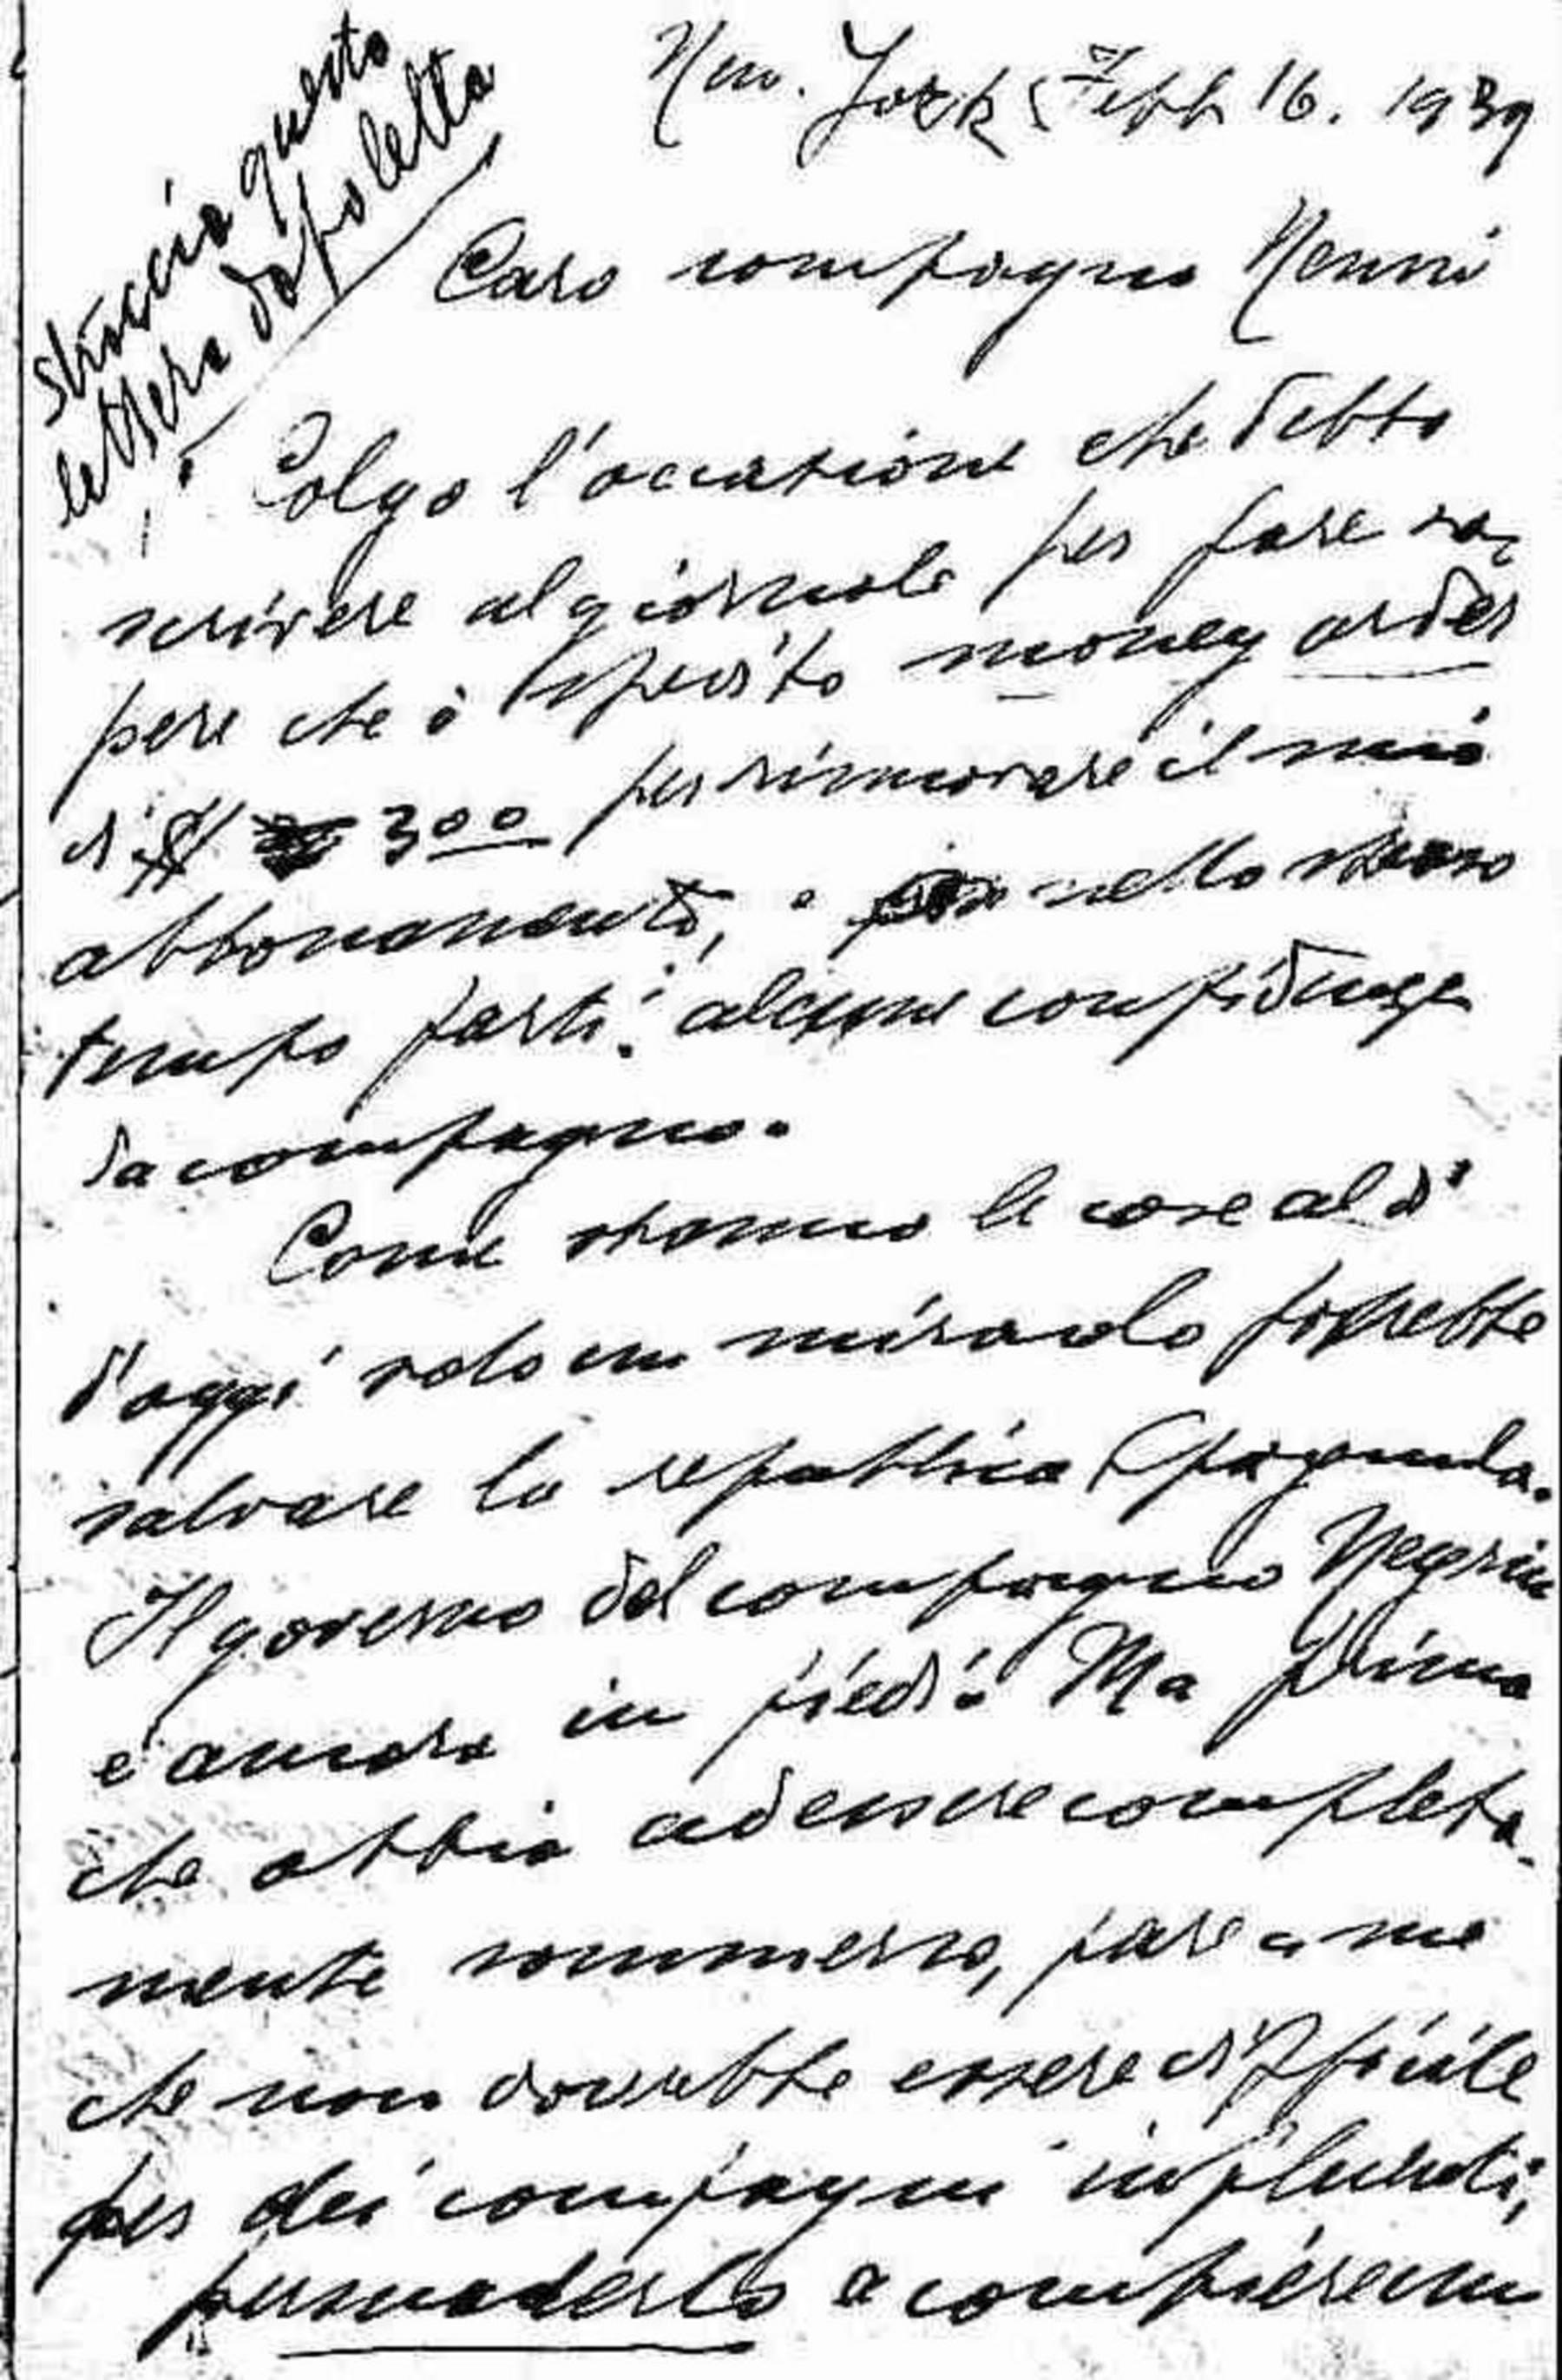 straccia questa
lettera dopo letta
New. York Febb 16. 1939
Caro compagno Nenni
Colgo l'occasione che debbo
scrivere al giornale per fare sa,
pere che ò spedito money order
di $ 3 00 per rinnovare il mio
abbonamento, e nello stesso
tempo farti alcune confidenze
da compagno.
Come stanno le cose al dì
d'oggi solo un miracolo potrebbe
salvare la repubblica Spagnula.
Il governo del compagno Negrin
e' ancora in piedi. Ma prima
che abbia ad essere completa-
mente sommerso, pare a me
che non dovrebbe essere difficile
per dei compagni influenti,
persuaderlo a compiere un